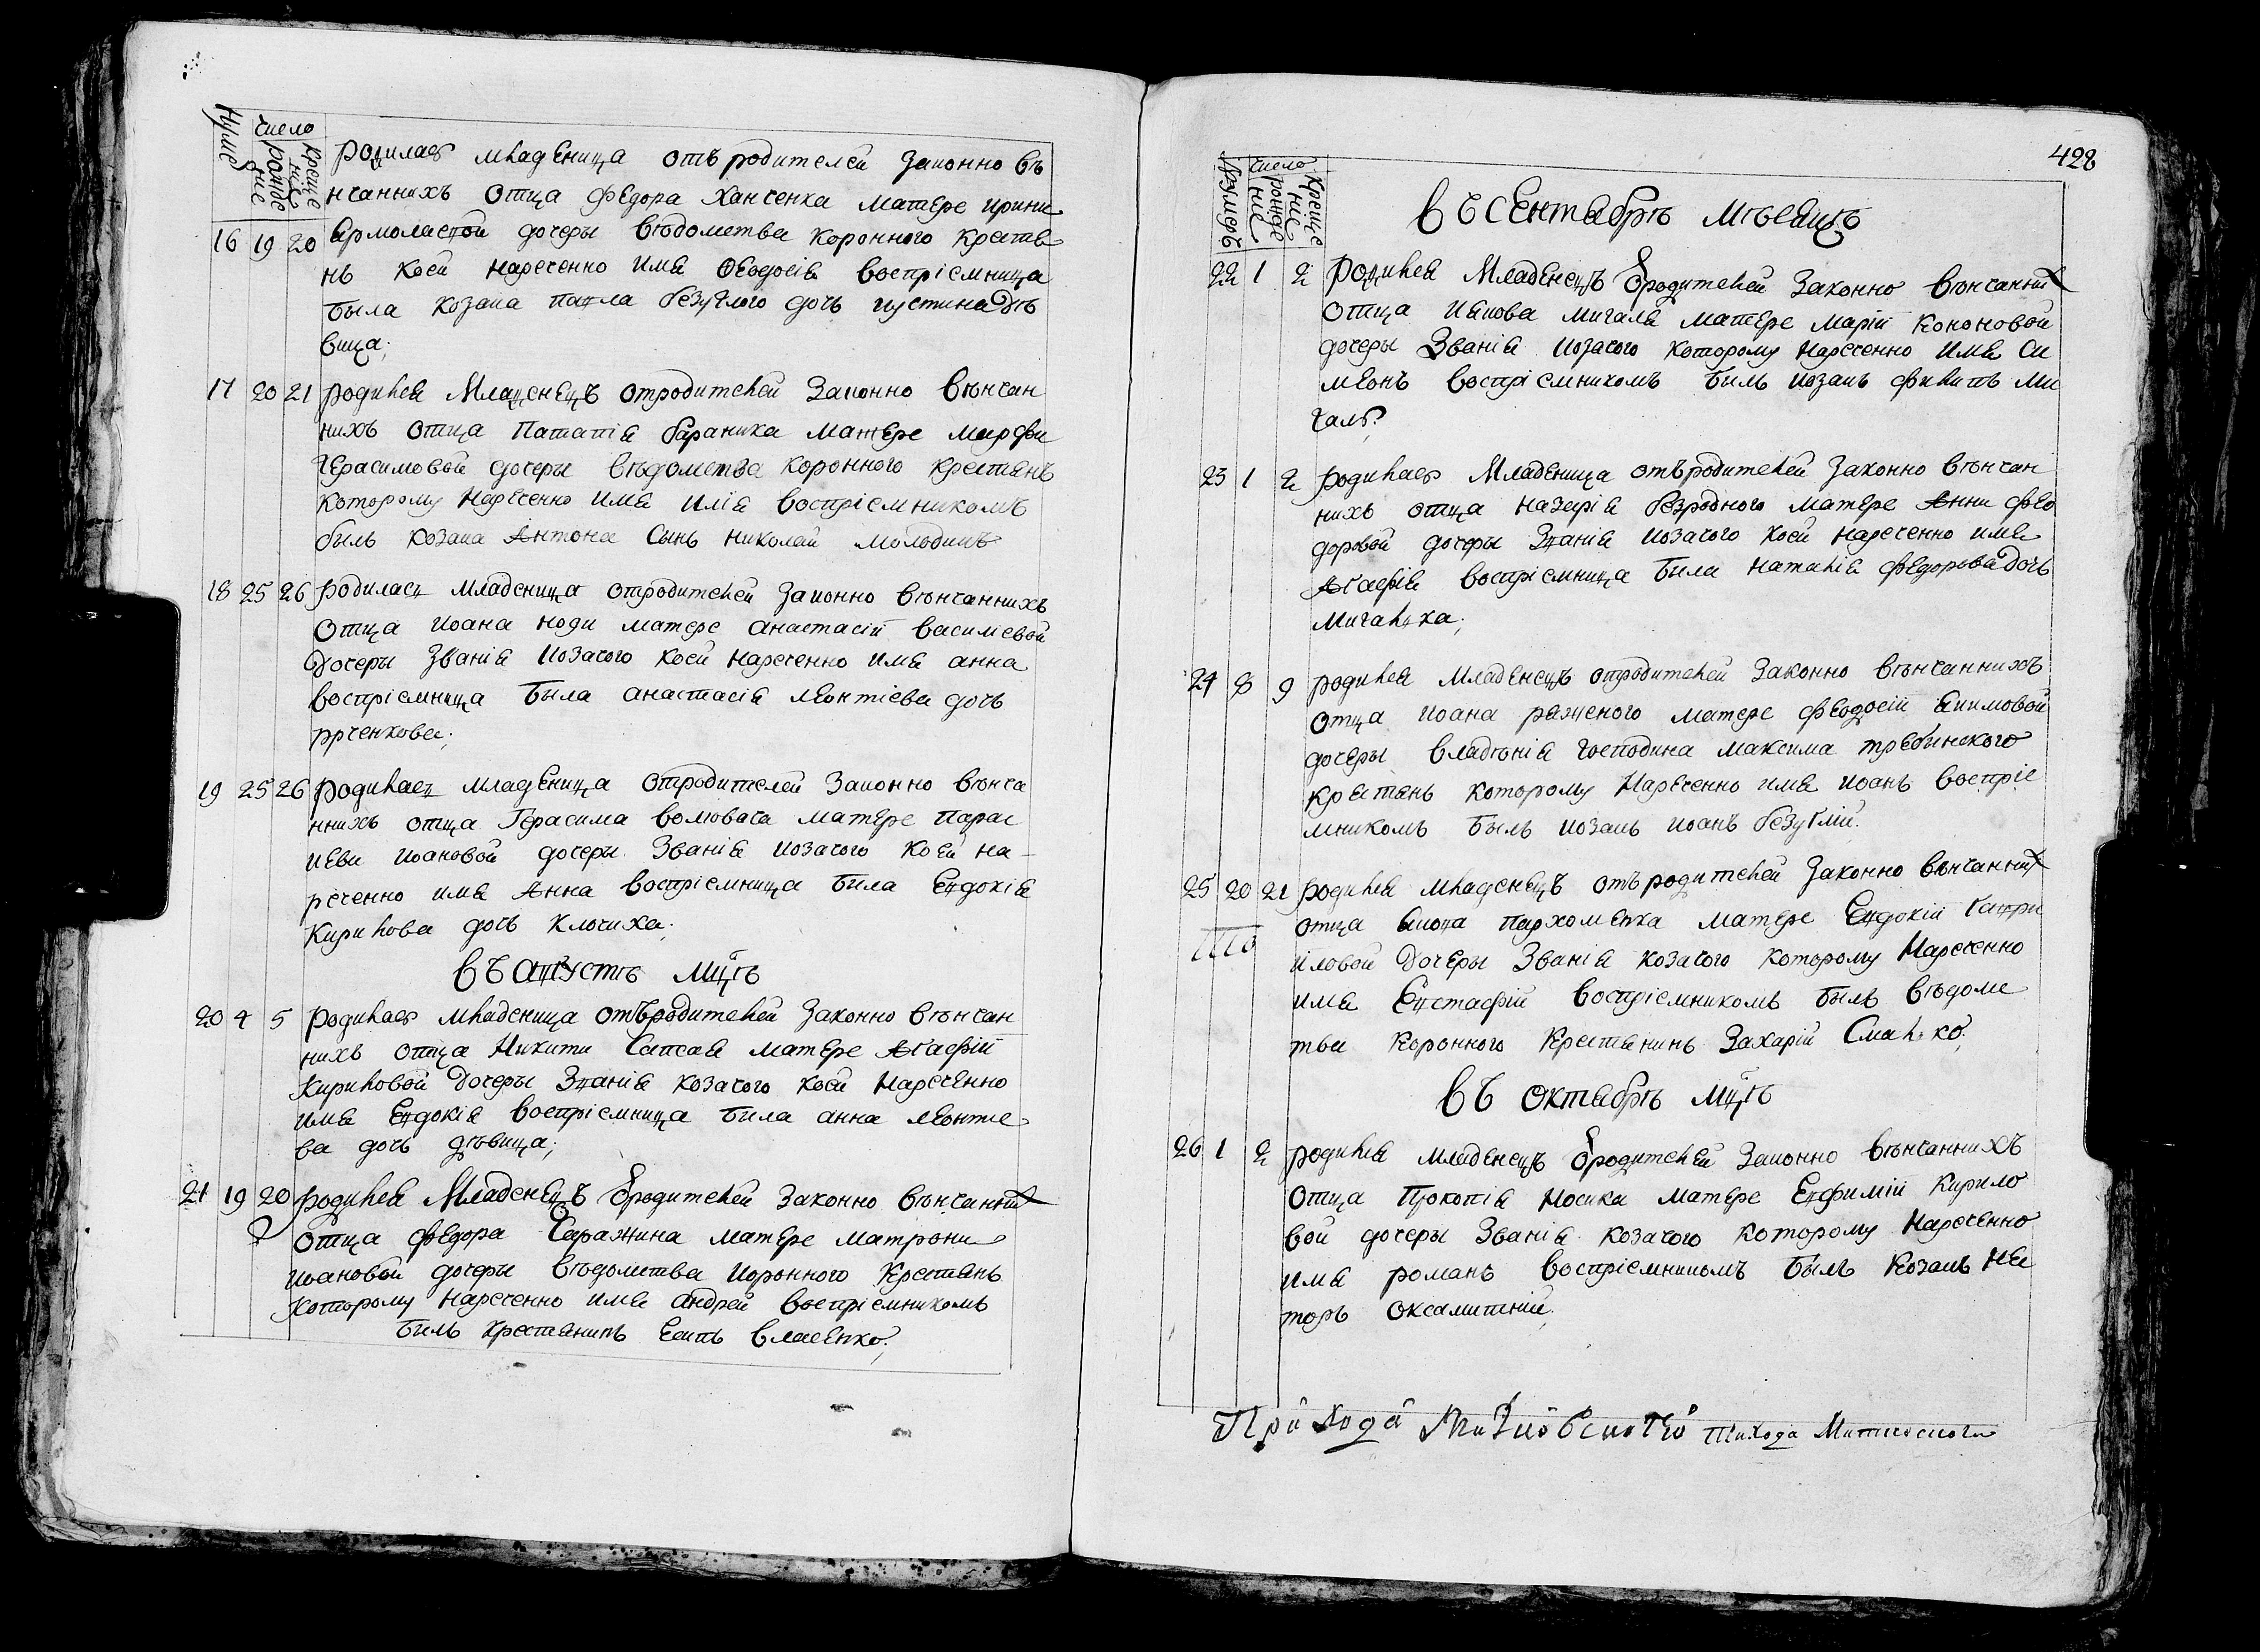 Нуме
число
рожде
ние
креще
ние
родилась младеница отъ родителей законно вѣ
нчаннихъ отца Федора Ханченка матере ирини
16 19 20 Ярмолаевой дочеры вѣдомства коронного крестя
нъ коей нареченно имя Феодосія воспріемница
была козака павла безуглого дочь иустина дѣ
вица;
17 20 21 родился младенецъ отродителей законно вѣнчан
нихъ отца Патапія бараника матере марфи
Герасимовой дочеры вѣдомства коронного крестянъ
которому нареченно имя илія воспріемникомъ
билъ козака Антона сынъ николай молодикъ
18 25 26 родилась младеница отродителей законно вѣнчаннихъ
отца иоана ноди матере анастасіи василіевой
дочеры званія козачого коей нареченно имя анна
воспріемница была анастасія леонтіева дочь

19 25 26 родилась младеница отродителей законно вѣнча
ннихъ отца Герасима волювача матере Парас
кеви иоановой дочеры званія козачого коей на-
реченно имя Анна воспріемница била Евдокія
Кирилова дочь клочиха;
въ августѣ мцѣ
20 4 5 родилась младеница отъродителей законно вѣнчан
нихъ отца Никити Сапсая матере Агафіи
Кириловой дочеры званія козачого коей нареченно
имя Евдокія воспріемница била анна леонтие
ва дочь дѣвица;
21 19 20 родился младенецъ ѿродителей законно вѣнчанних
отца Федора Саражина матере матрони
иоановой дочеры вѣдомства коронного крестянъ
которому нареченно имя андрей воспріемникомъ
билъ крестянинъ Есипъ власенко;
428
нумеръ
число
рожде
ние
креще
ние
въ сентябрѣ мѣсяцѣ
22 1 2 родился младенецъ ѿродителей законно вѣнчанних
отца иакова мигаля матере маріи кононовой
дочеры званія козачого которому нареченно имя си
меонъ воспріемникомъ билъ козакъ филипъ ми
галь;
23 1 2 родилась младеница отъродителей законно вѣнчан
нихъ отца назарія безродного матере Анни фео
доровой дочеры званія козачого коей нареченно имя
Агафія воспріемница била наталія федорова дочь
мигалка;
24 8 9 родился младенецъ отродителей законно вѣнчаннихъ
отца иоана раженого матере феодосіи якимовой
дочеры владѣнія господина максима требинского
крестянъ которому нареченно имя иоанъ воспріе
мникомъ былъ козакъ иоанъ безуглій.
25 20 21 родился младенецъ отъ родителей законно вѣнчанних
отца якова пархоменка матере Евдокіи гаври
иловой дочеры званія козачого которому нареченно
имя Евстафій воспріемникомъ былъ вѣдомс
тва коронного крестянинъ Захарій Смалко;
въ октябрѣ мцѣ
26 1 2 родился младенецъ ѿродителей законно вѣнчаннихъ
отца Прокопія Носика матере Евфиміи кирило
вой дочеры званія козачого которому нареченно
имя романъ воспріемникомъ былъ козакъ нес
торъ оксамитній;